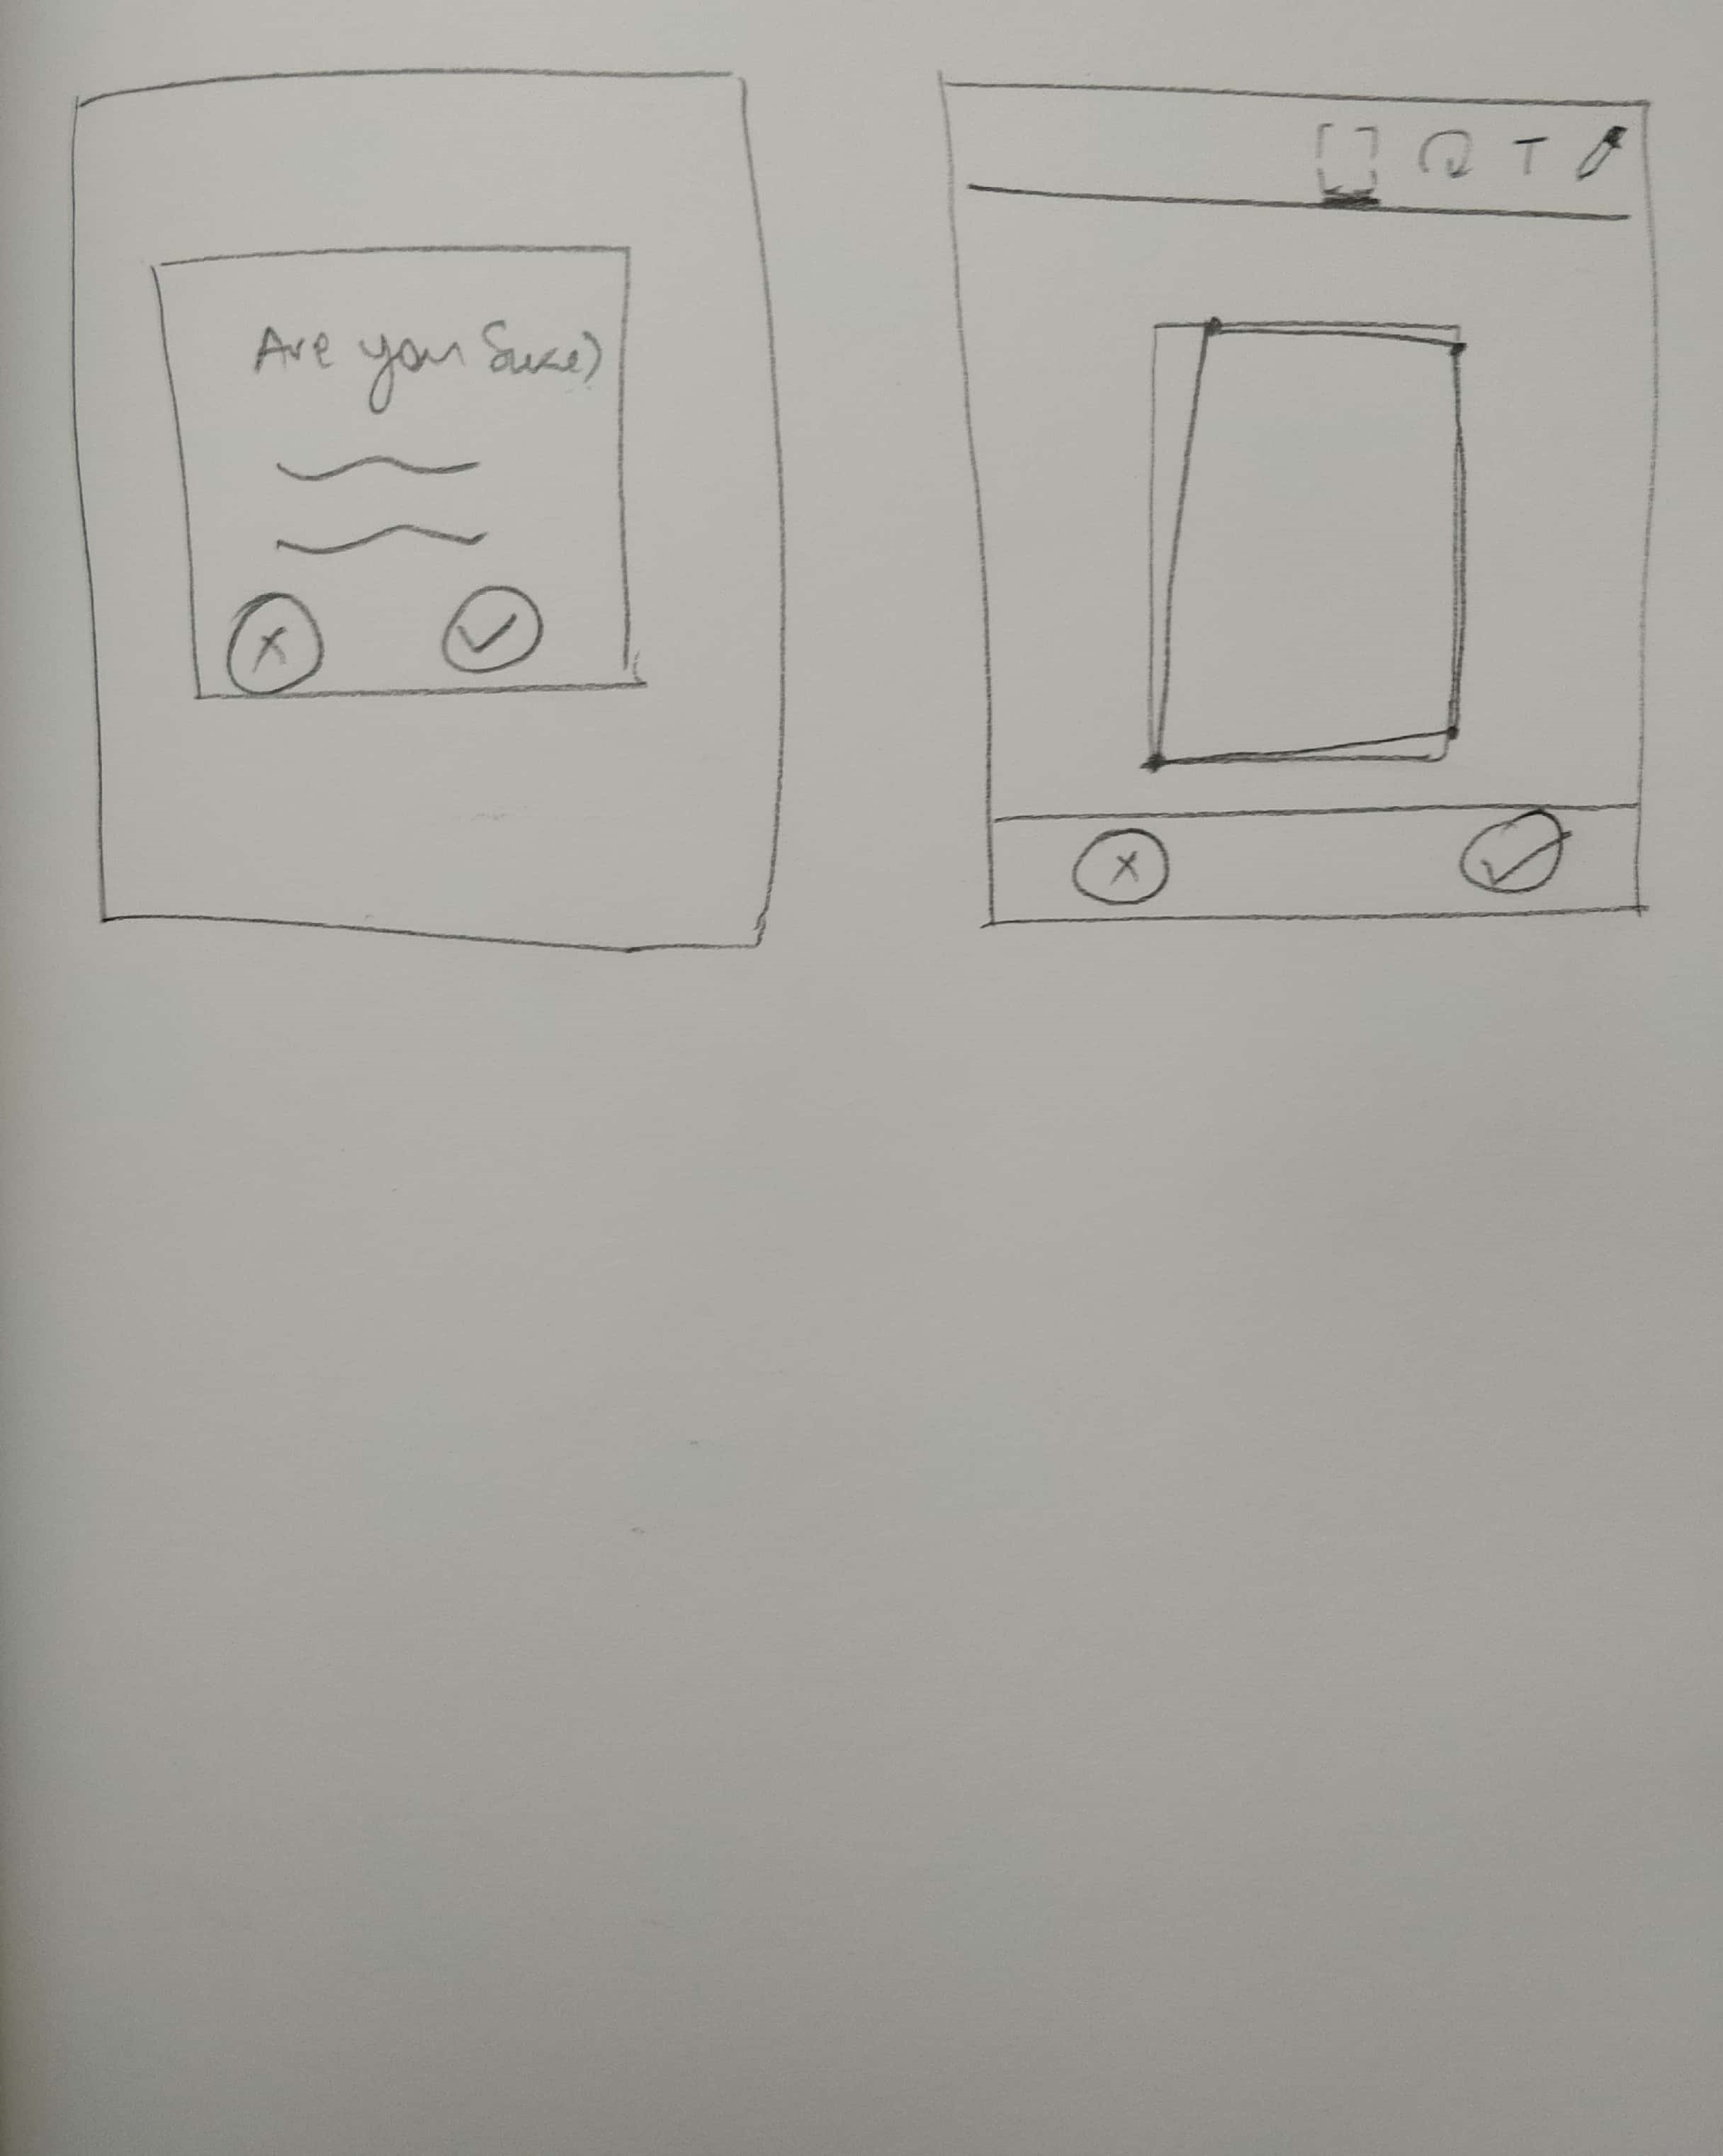 Are you Sure?
T